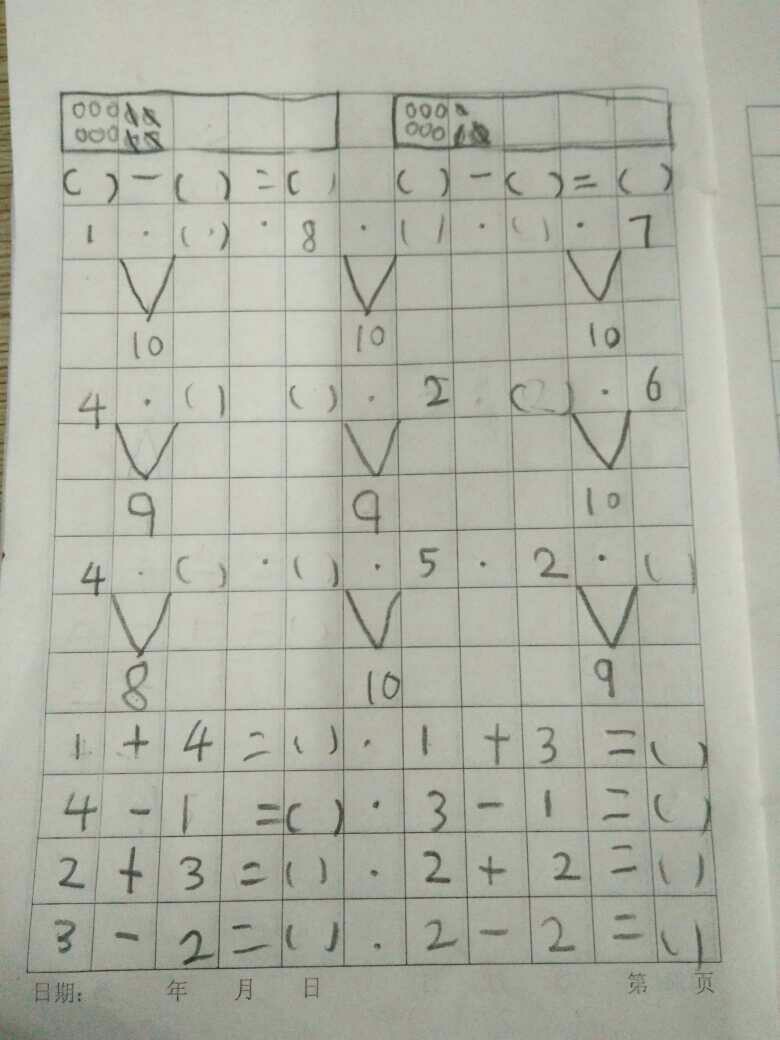 ( ) - ( ) = ( ) ( ) - ( ) = ( )
1 · ( · ) · 8 · ( ) · ( ) · 7
10 10 10
4 · ( ) ( ) · 2 ( ) · 6
9 9 10
4 · ( ) · ( ) · 5 · 2 · ( )
8 10 9
1 + 4 = ( ) · 1 + 3 = ( )
4 - 1 = ( ) · 3 - 1 = ( )
2 + 3 = ( ) · 2 + 2 = ( )
3 - 2 = ( ) · 2 - 2 = ( )
日期: 年 月 日 第 页